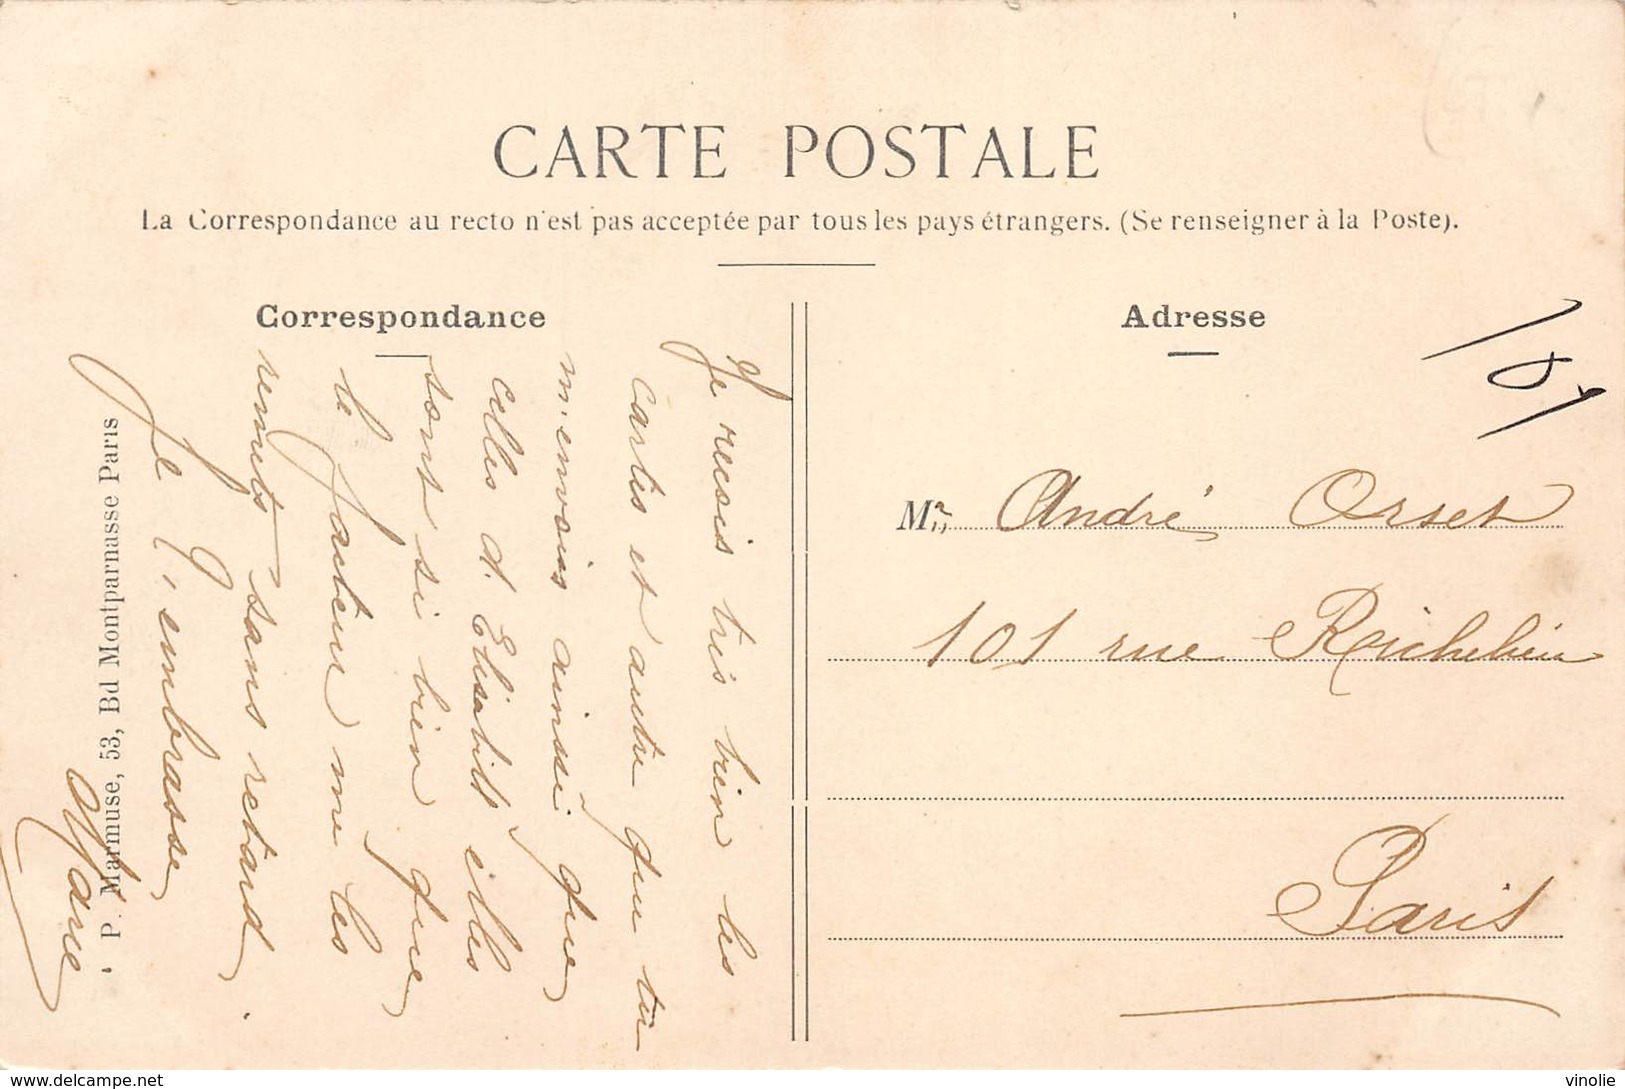 CARTE POSTALE
La Correspondance au recto n'est pas acceptée par tous les pays étrangers. (Se renseigner à la Poste).
Correspondance
Je recois tres bien les
cartes et autre que tu
m'envois ainsi que
celles d'Elisabeth elles
sont si bien que
le facteur me les
remets sans retard
Je t'embrasse
Marie
P. Marmuse, 53, Bd Montparnasse Paris
Adresse
Mr André Orset
101 rue Reichelieu
Paris
www.delcampe.net
vinolie